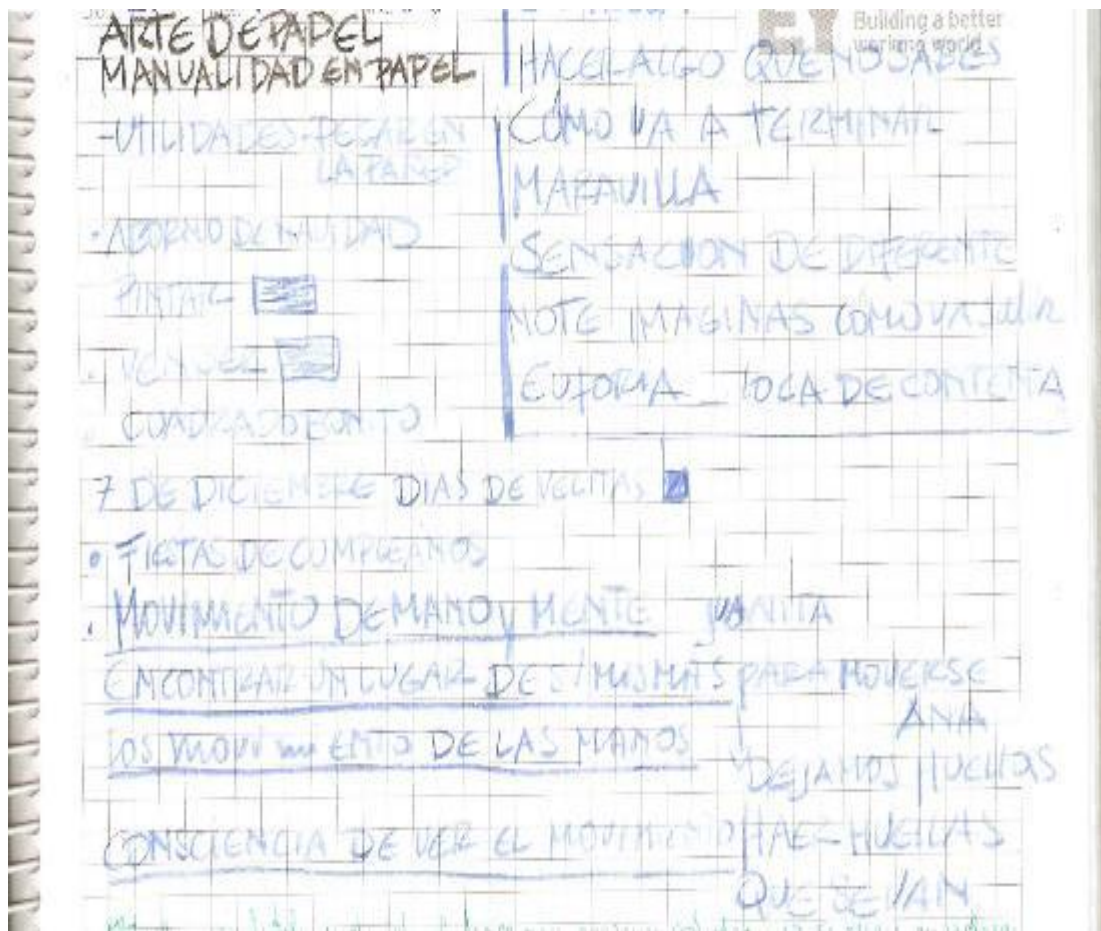 ARTE DE PAPEL
MANUALIDAD EN PAPEL
-UTILIDADES-PEGAR EN
LA PARED
·ADORNO DE NAVIDAD
PINTAR
· VENDER
CUADRADO BONITO
EY Building a better
working world
HACER ALGO QUE NO SABES
CÓMO VA A TERMINAR
MARAVILLA
SENSACION DE DIFERENTE
NO TE IMAGINAS COMO VA SALIR
EUFORIA LOCA DE CONTENTA
7 DE DICIEMBRE DIAS DE VELITAS
• FIESTAS DE CUMPLEAÑOS
· MOVIMIENTO DE MANO Y MENTE JUANITA
ENCONTRAR UN LUGAR DE SÍ MISMAS PARA MOVERSE
ANA
LOS MOVIMIENTO DE LAS MANOS
DEJAMOS HUELLAS
CONSCIENCIA DE VER EL MOVIMIENTO
HUELLAS
QUE SE VAN